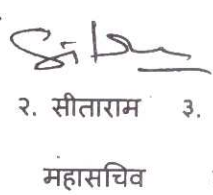 २. सीताराम ३.
महासचिव